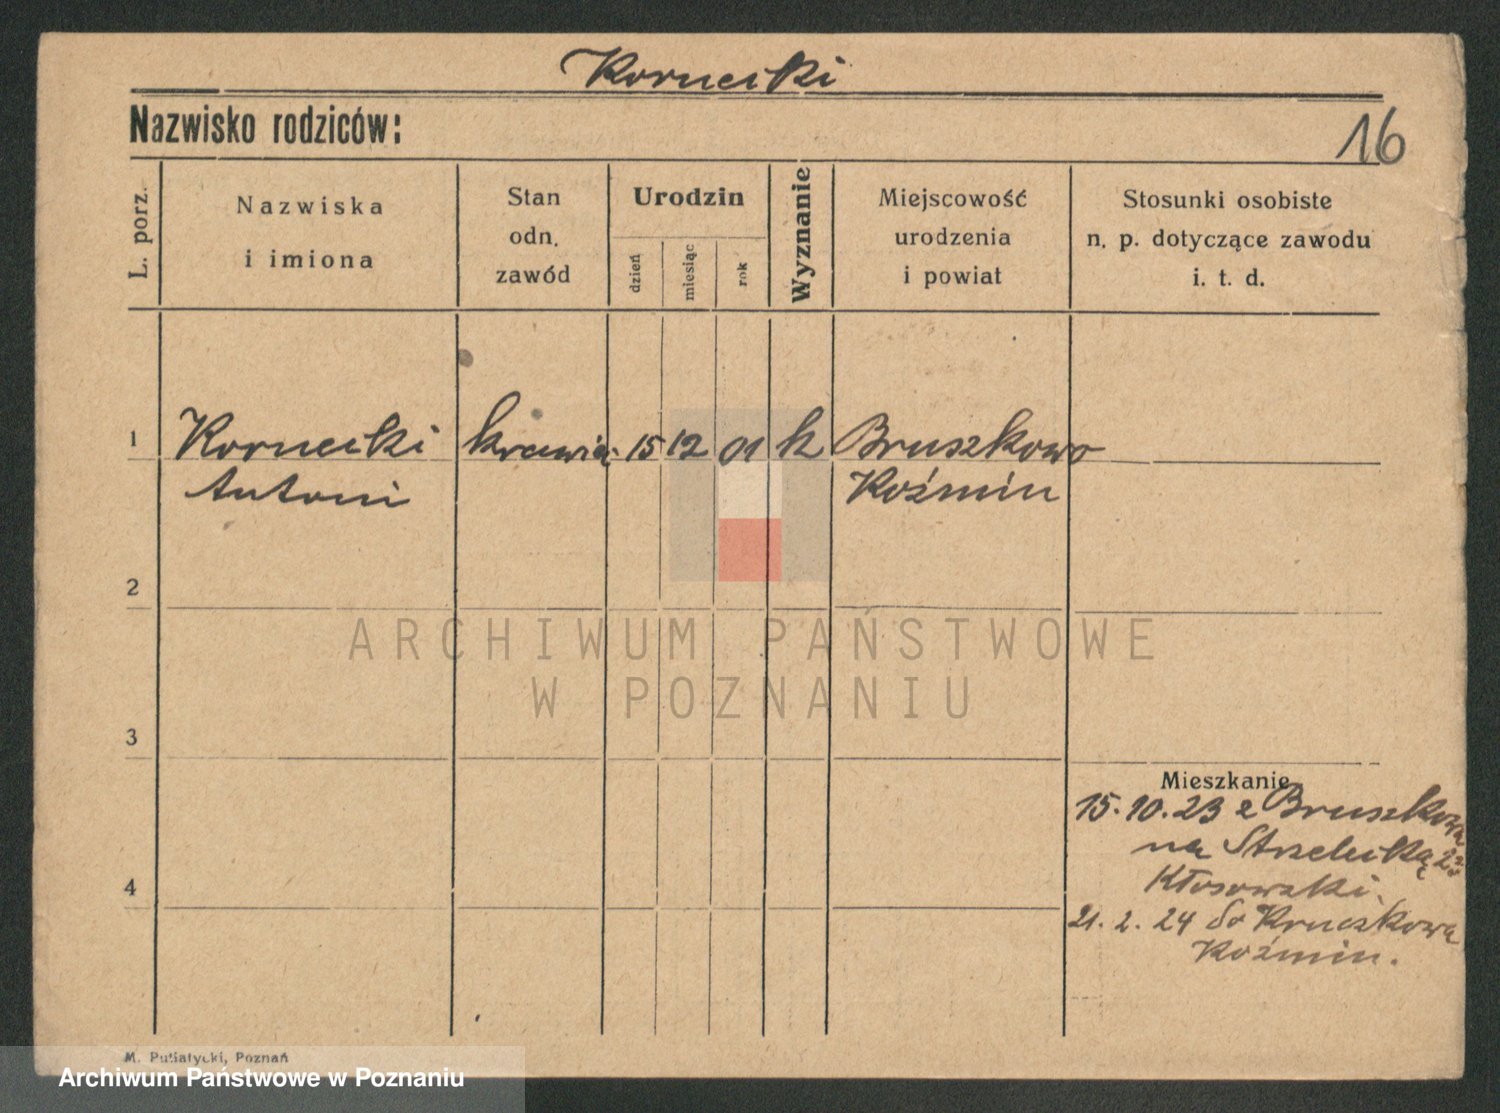 Kornecki
Nazwisko rodziców:
16
L. porz.
Nazwiska
i imiona
Stan
odn.
zawód
Urodzin
dzień
miesiąc
rok
Wyznanie
Miejscowość
urodzenia
i powiat
Stosunki osobiste
n. p. dotyczące zawodu
i. t. d.
1
Kornecki krawiec 15 12 01 k Bruszkowo
Antoni Koźmin
2
ARCHIWUM PAŃSTWOWE
W POZNANIU
3
Mieszkanie
15.10.23 z Bruszkowa
na Strzelecką
Kłosowski.
4
21.2.24 do Kruszkowa
Koźmin.
M. Putiatycki, Poznań
Archiwum Państwowe w Poznaniu